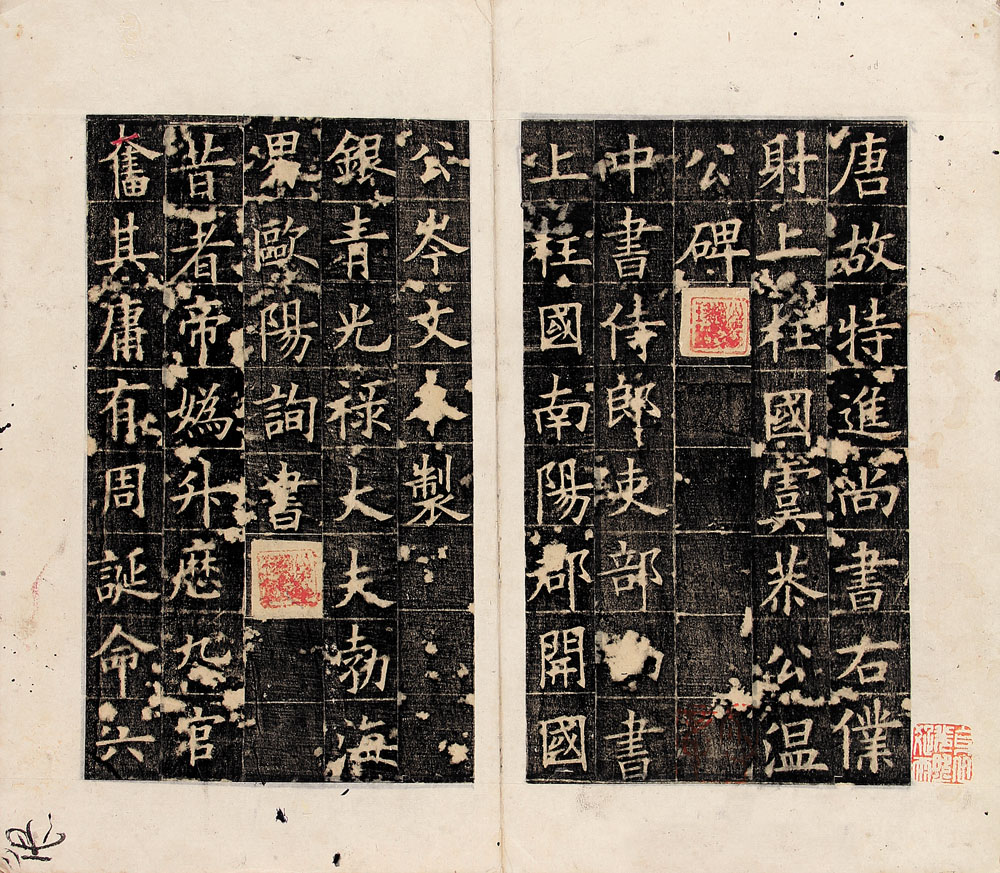 唐故特進尚書右僕
射上柱國虞恭公温
公碑
中書侍郎吏部書
上柱國南陽郡開國
公岑文本製
銀青光祿大夫勃海
男歐陽詢書
昔者帝媯升歷九官
奮其庸有周誕命六